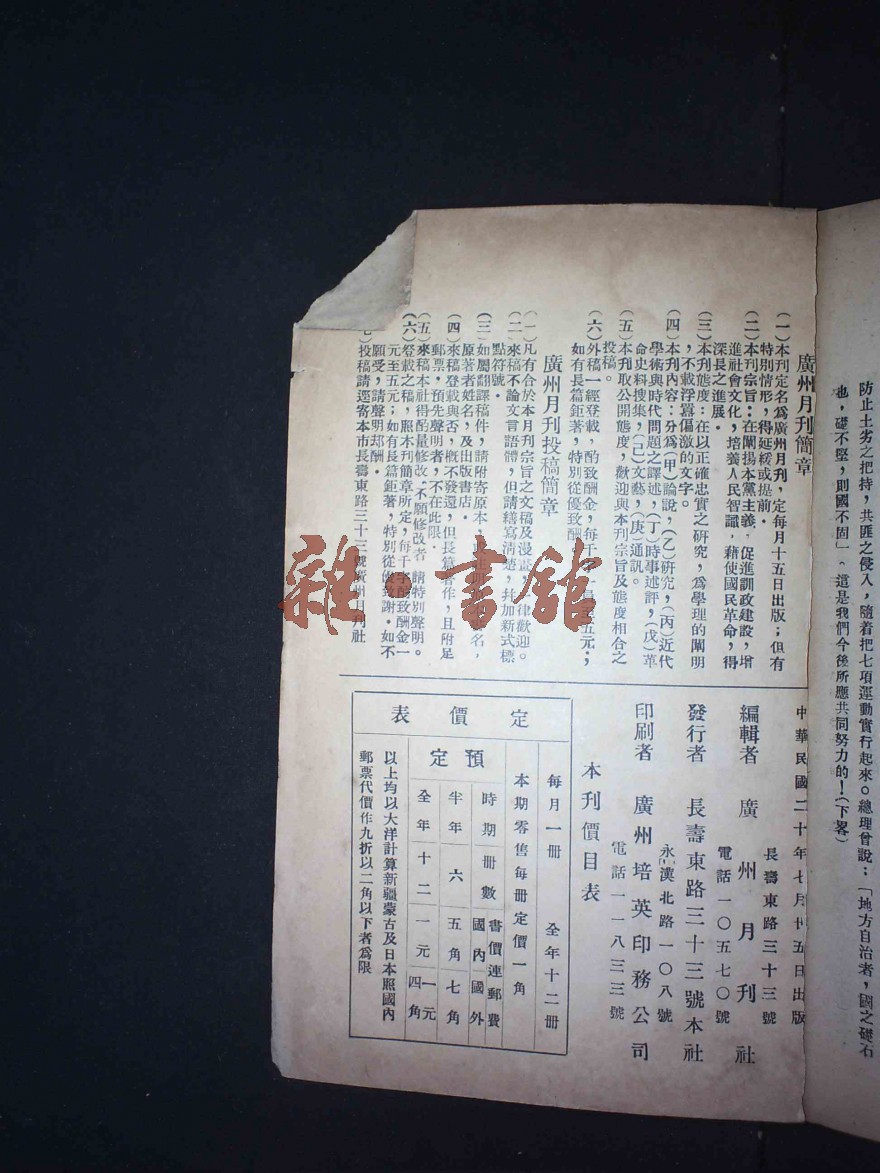 防止土劣之把持，共匪之侵入，隨着把七項運動實行起來。總理曾說：「地方自治者，國之礎石
也，礎不堅，則國不固」。這是我們今後所應共同努力的！(下畧)
廣州月刊簡章
(一)本刊定名爲廣州月刊，定每月十五日出版；但有
特別情形，得延緩或提前．
(二)本刊宗旨：在闡揚本黨主義，促進訓政建設，增
進社會文化，培養人民智識，藉使國民革命，得
深長之進展．
(三)本刊態度：在以正確忠實之研究，爲學理的闡明
，不載浮囂偏激的文字。
(四)本刊內容：分爲(甲)論說，(乙)研究，(丙)近代
學術與時代問題之譯述，(丁)時事述評，(戊)革
命史料搜集，(己)文藝，(庚)通訊。
(五)本刊取公開態度，歡迎與本刊宗旨及態度相合之
投稿。
(六)外稿一經登載，酌致酬金，每千字一員至五元；
如有長篇鉅著，特別從優致酬
廣州月刊投稿簡章
(一)凡有合於本月刊宗旨之文稿及漫畫，一律歡迎。
(二)來稿不論文言語體，但請繕寫清楚，幷加新式標
點符號．
(三)如屬翻譯稿件，請附寄原本，名，
原著者姓名，及出版書店．
(四)來稿登載與否，概不發還，但長篇著作，且附足
郵票，預先聲明者，不在此限．
(五)來稿本社得酌量修改，不願修改者，請特別聲明。
(六)登載之稿，照本刊簡章所定，每千字酌致酬金一
元至五元；如有長篇鉅著，特別從優致謝．如不
願受，請聲明却酬．
投稿請逕寄本市長壽東路三十三號廣州月刊社
中華民國二十年七月廿五日出版
編輯者 廣州月刊社
長壽東路三十三號
電話一〇五七〇號
發行者 長壽東路三十三號本社
印刷者 廣州培英印務公司
永漢北路一〇八號
電話一一八三三號
本刊價目表
定價表
每月一冊 全年十二冊
本期零售每冊定價一角
預定
時期 冊數 書價連郵費
國內 國外
半年 六 五角 七角
全年 十二 一元 一元四角
以上均以大洋計算新疆蒙古及日本照國內
郵票代價作九折以二角以下者爲限
雜書館